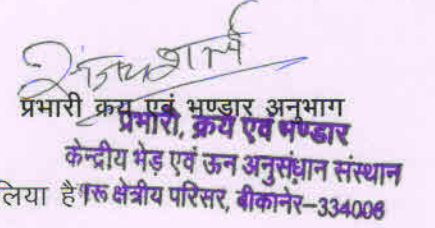 प्रभारी क्रय एवं भण्डार अनुभाग
प्रभारी, क्रय एवं भण्डार
केन्द्रीय भेड़ एवं ऊन अनुसंधान संस्थान
लिया है मरू क्षेत्रीय परिसर, बीकानेर–334006